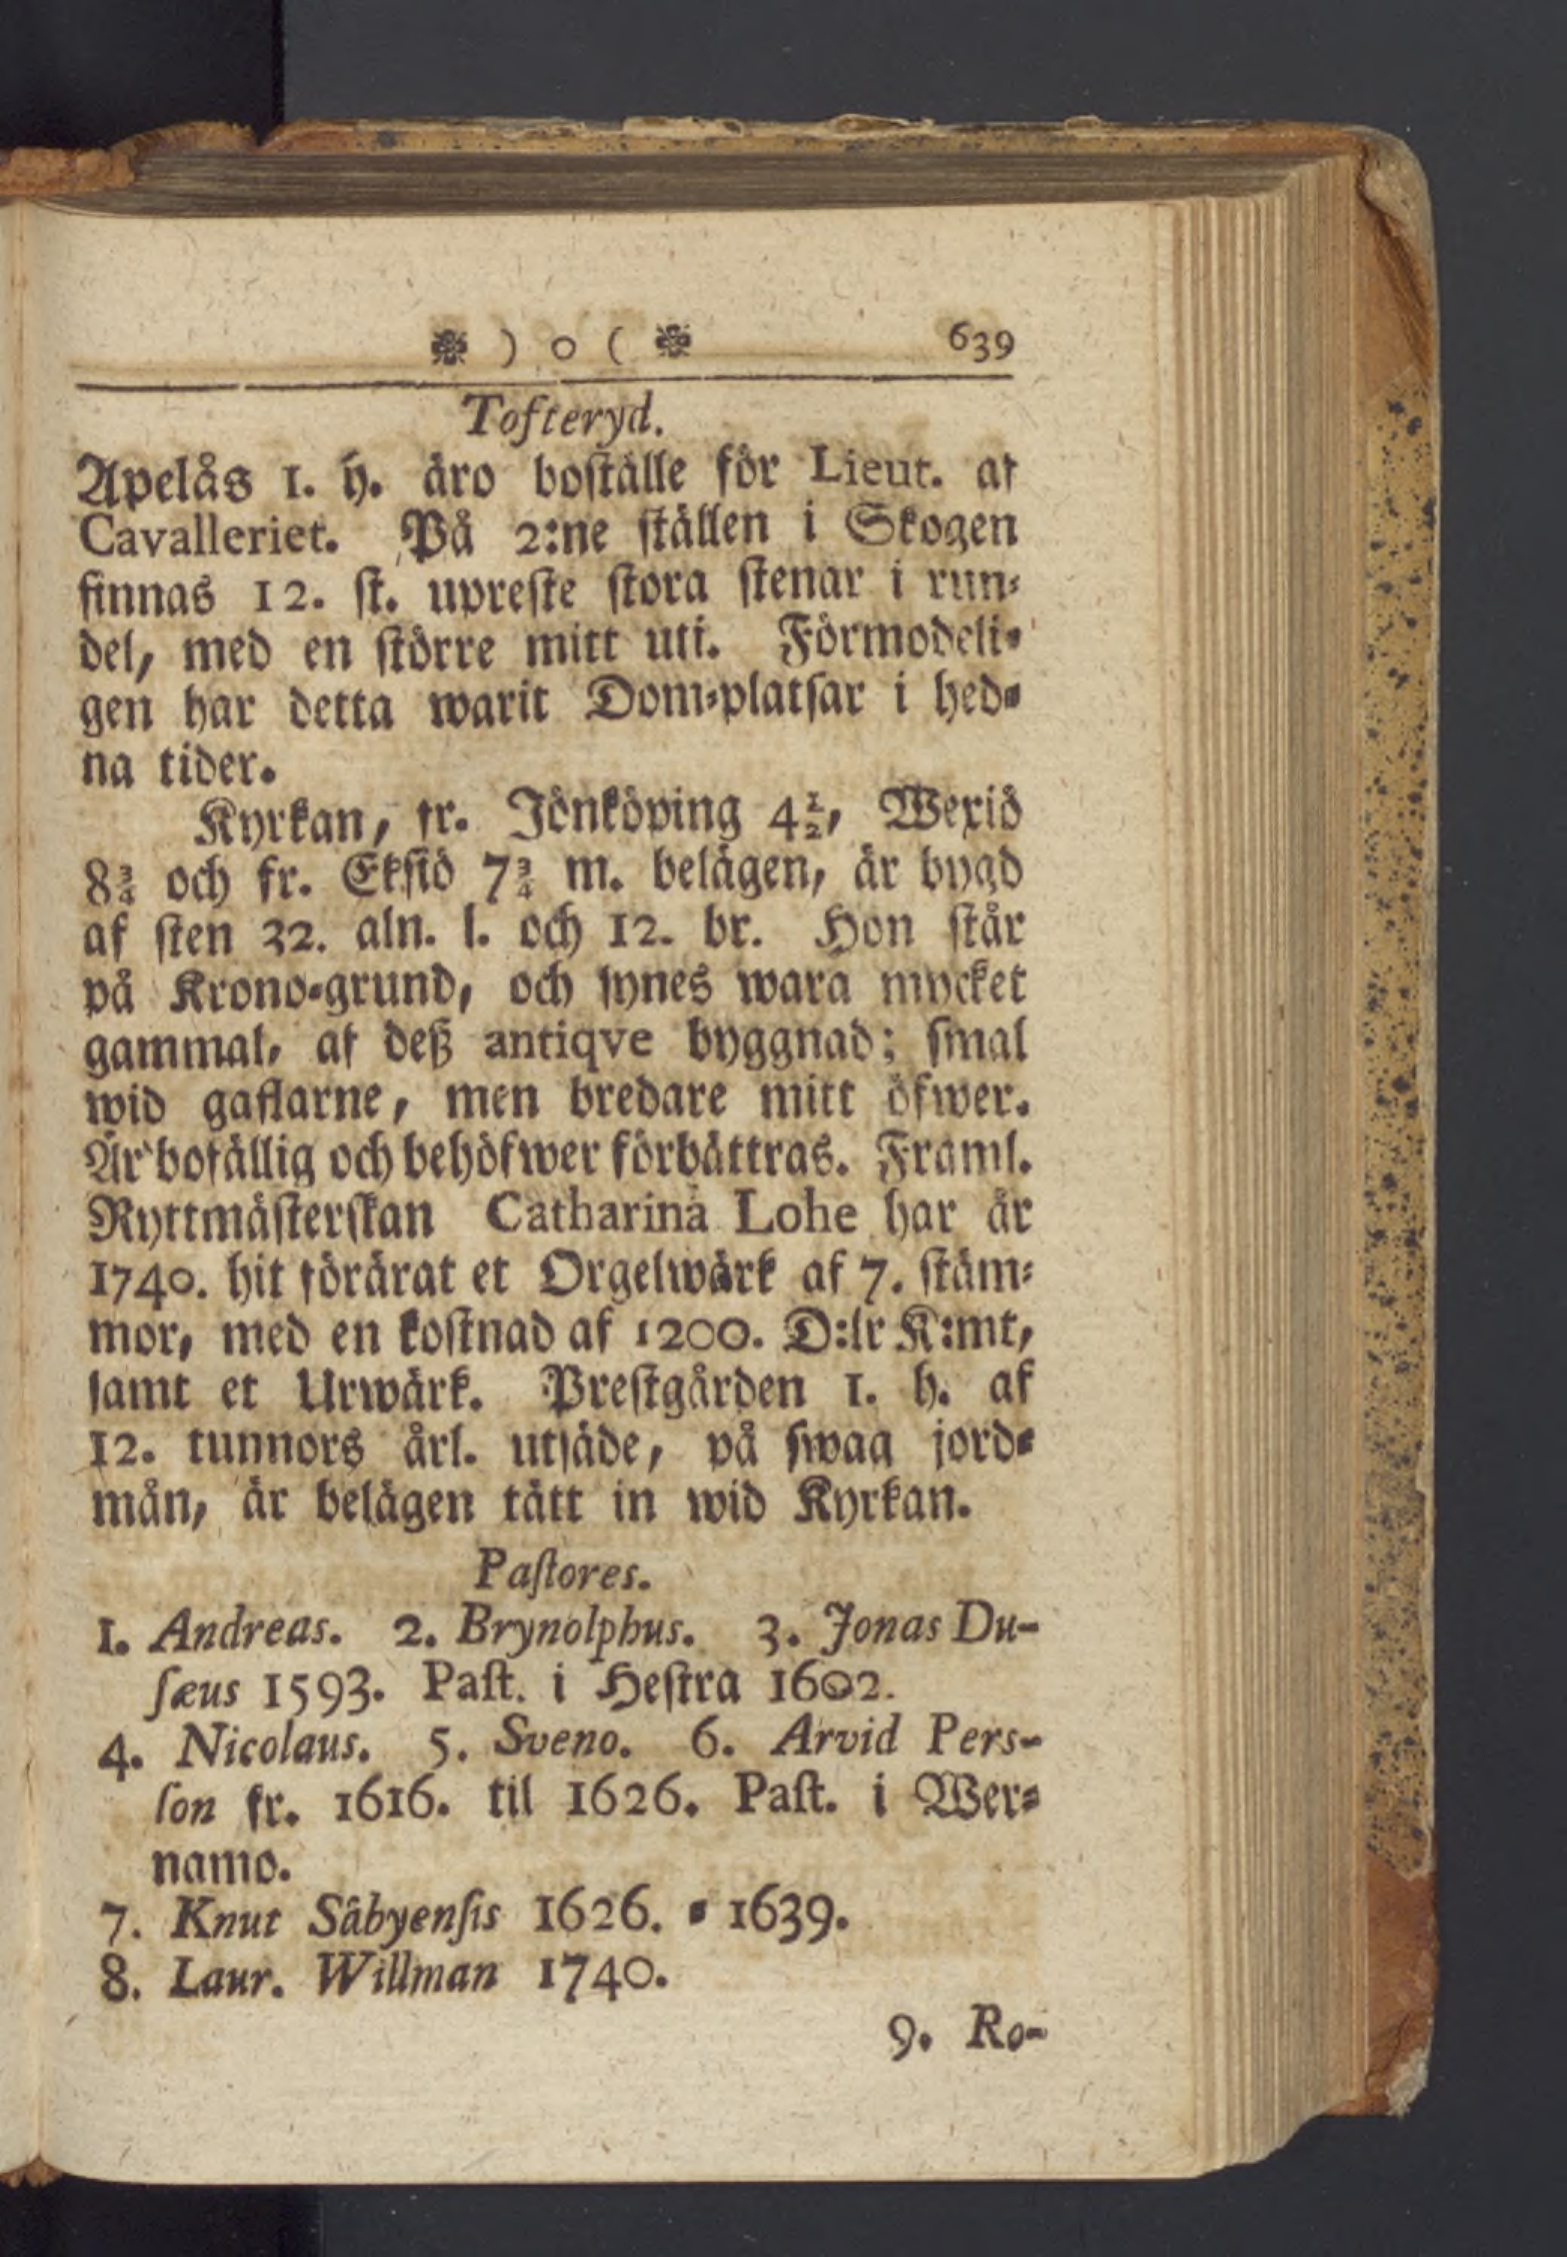 ❃ ) o ( ❃ 639
Tofteryd.
Apelås 1. h. äro boställe för Lieut. af
Cavalleriet. På 2:ne ställen i Skogen
finnas 12. st. upreste stora stenar i run-
del, med en större mitt uti. Förmodeli-
gen har detta warit Dom-platsar i hed-
na tider.
Kyrkan, fr. Jönköping 4½, Wexiö
8¾ och fr. Eksiö 7¾ m. belägen, är bygd
af sten 32. aln. l. och 12. br. Hon står
på Krono-grund, och synes wara mycket
gammal, af deß antiqve byggnad; smal
wid gaflarne, men bredare mitt öfwer.
Är bofällig och behöfwer förbättras. Framl.
Ryttmästerskan Catharina Lohe har år
1740. hit förärat et Orgelwärk af 7. stäm-
mor, med en kostnad af 1200. D:lr K:mt,
samt et Urwärk. Prestgården 1. h. af
12. tunnors årl. utsäde, på swag jord-
mån, är belägen tätt in wid Kyrkan.
Pastores.
1. Andreas. 2. Brynolphus. 3. Jonas Du-
sæus 1593. Past. i Hestra 1602.
4. Nicolaus. 5. Sveno. 6. Arvid Pers-
son fr. 1616. til 1626. Past. i Wer-
namo.
7. Knut Säbyensis 1626. - 1639.
8. Laur. Willman 1740.
9. Ro-